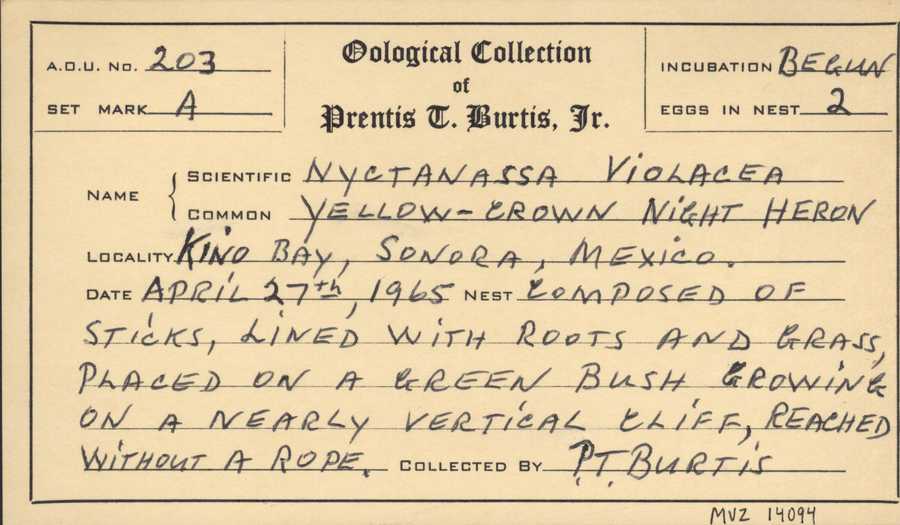 A.O.U. No. 203
SET MARK A
Oological Collection
of
Prentis T. Burtis, Jr.
INCUBATION BEGUN
EGGS IN NEST 2
NAME
SCIENTIFIC NYCTANASSA VIOLACEA
COMMON YELLOW-CROWN NIGHT HERON
LOCALITY KINO BAY, SONORA, MEXICO.
DATE APRIL 27th, 1965 NEST COMPOSED OF
STICKS, LINED WITH ROOTS AND GRASS,
PLACED ON A GREEN BUSH GROWING
ON A NEARLY VERTICAL CLIFF, REACHED
WITHOUT A ROPE. COLLECTED BY P.T. BURTIS
MVZ 14094